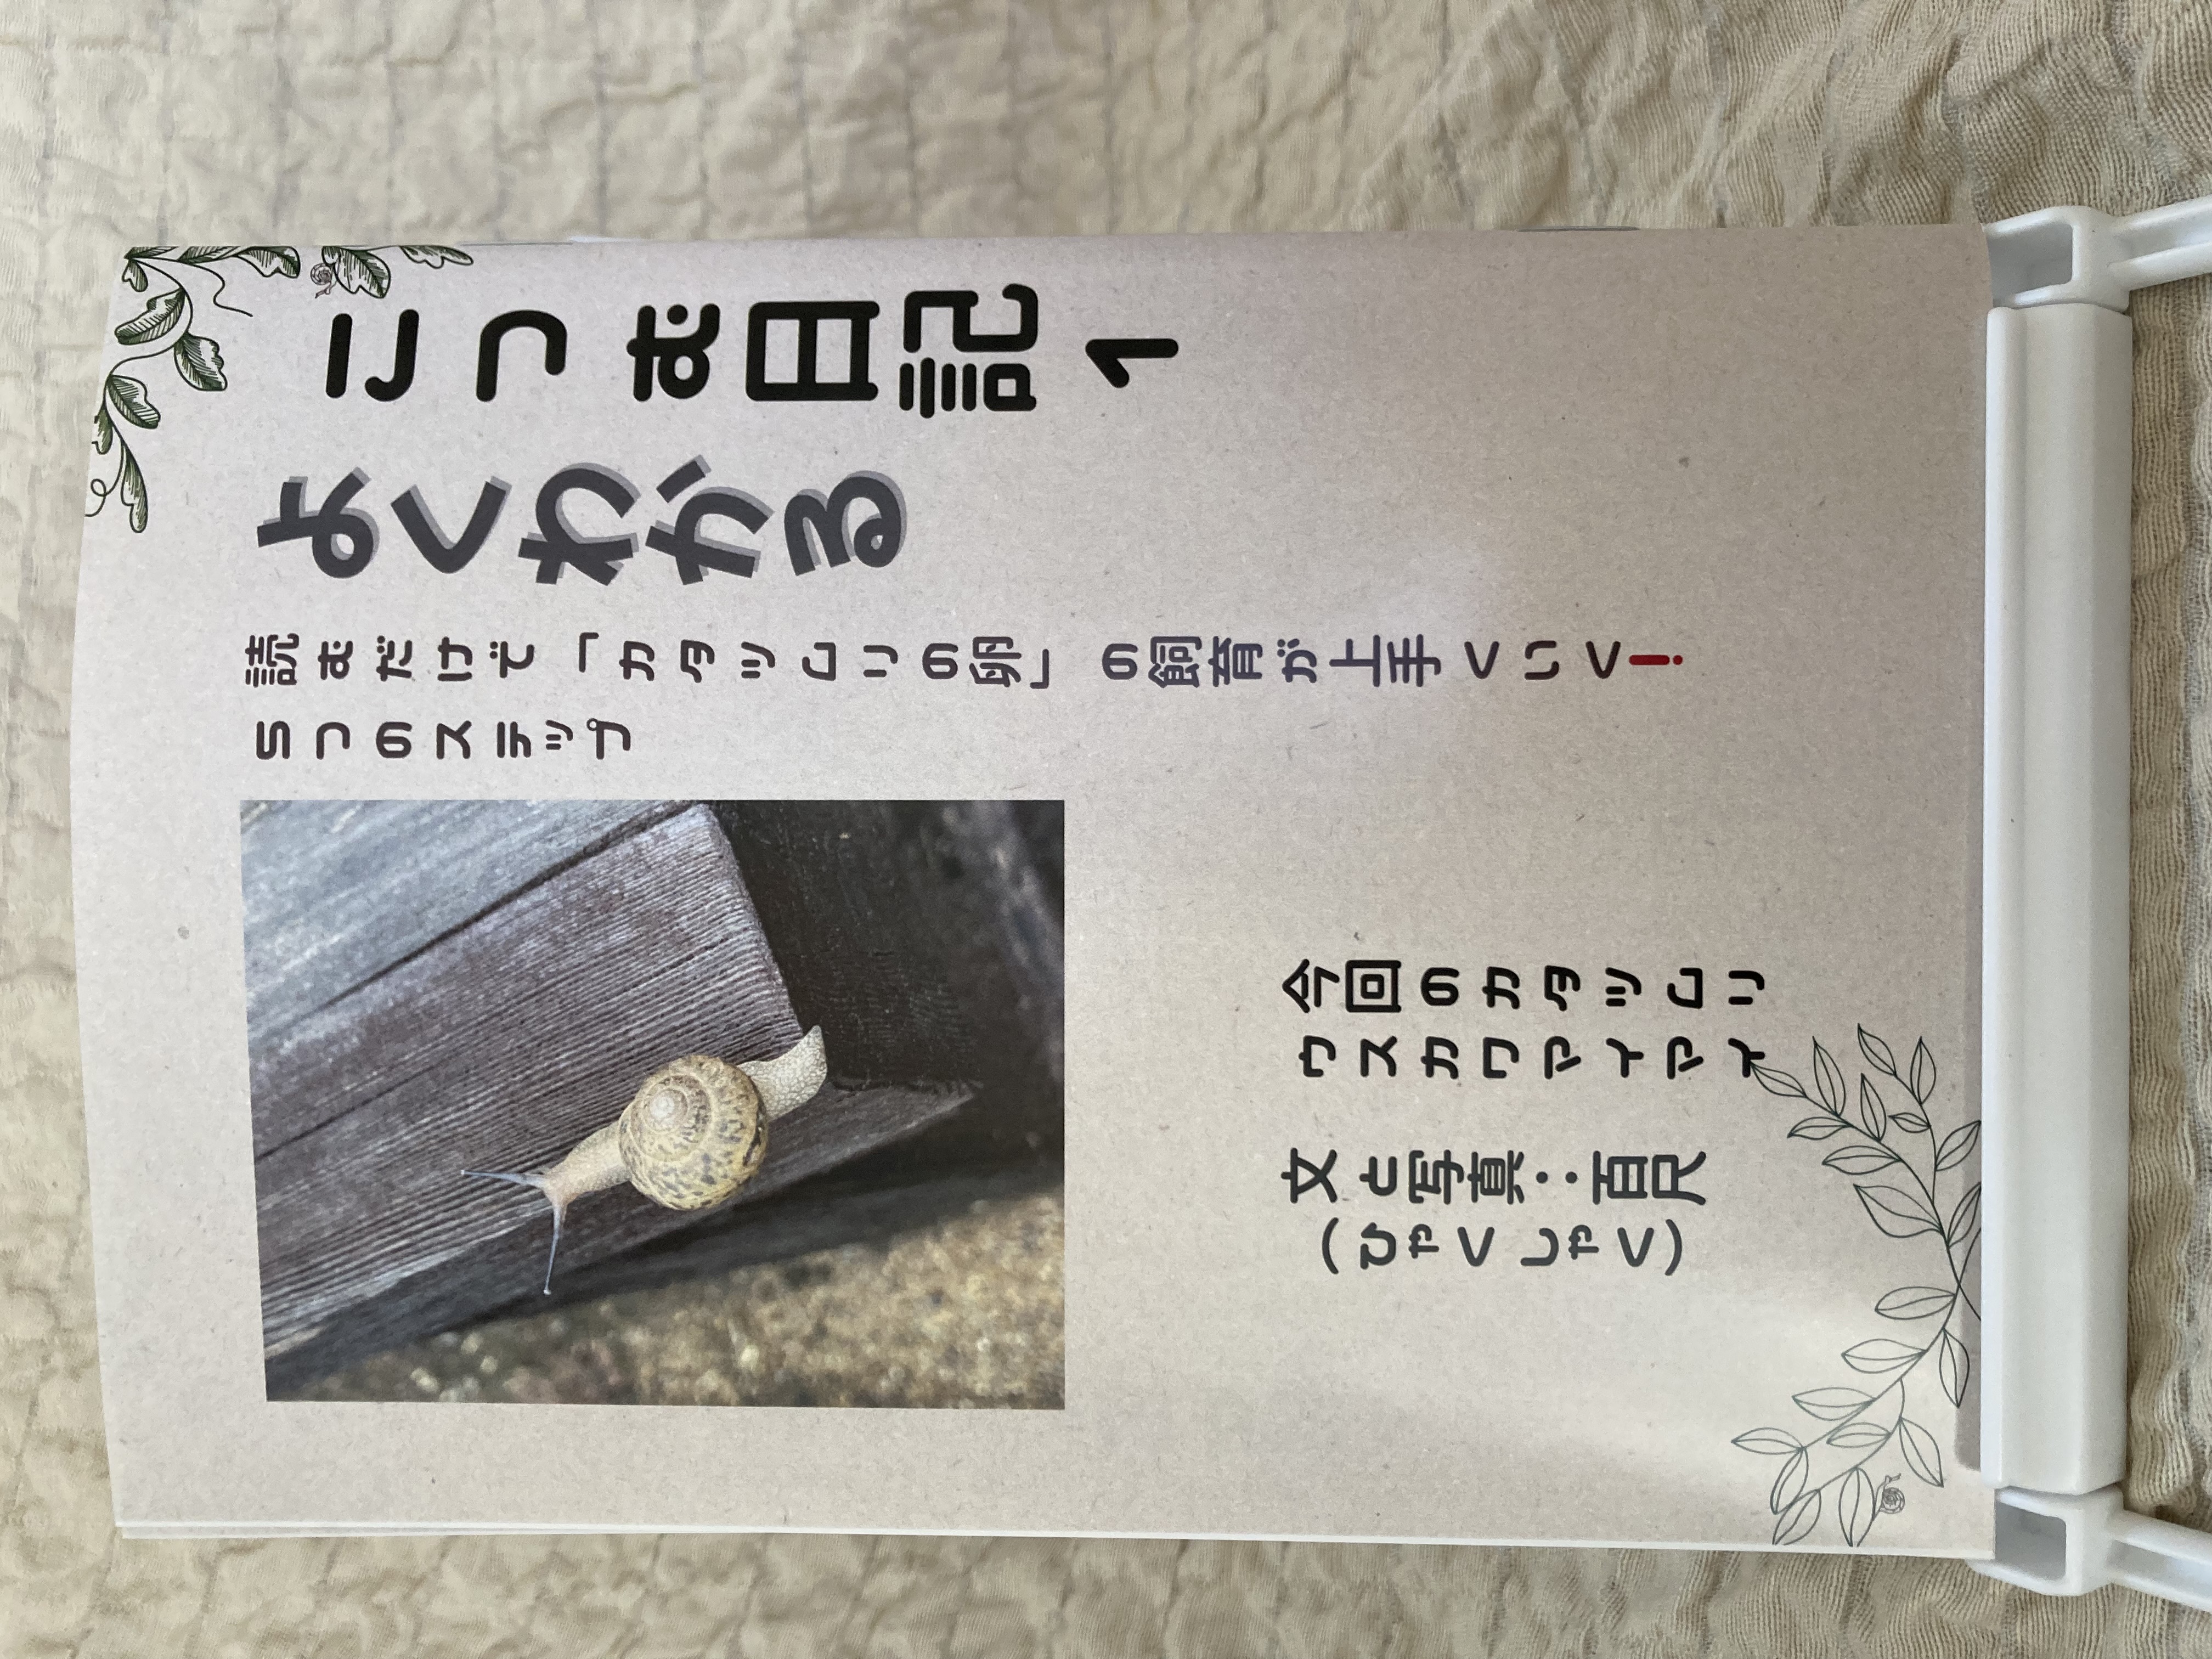 こつむ日記1
よくわかる
読むだけで「カタツムリの卵」の飼育が上手くいく！
5つのステップ
今回のカタツムリ
ウスカワマイマイ
文と写真：百尺
（ひゃくしゃく）